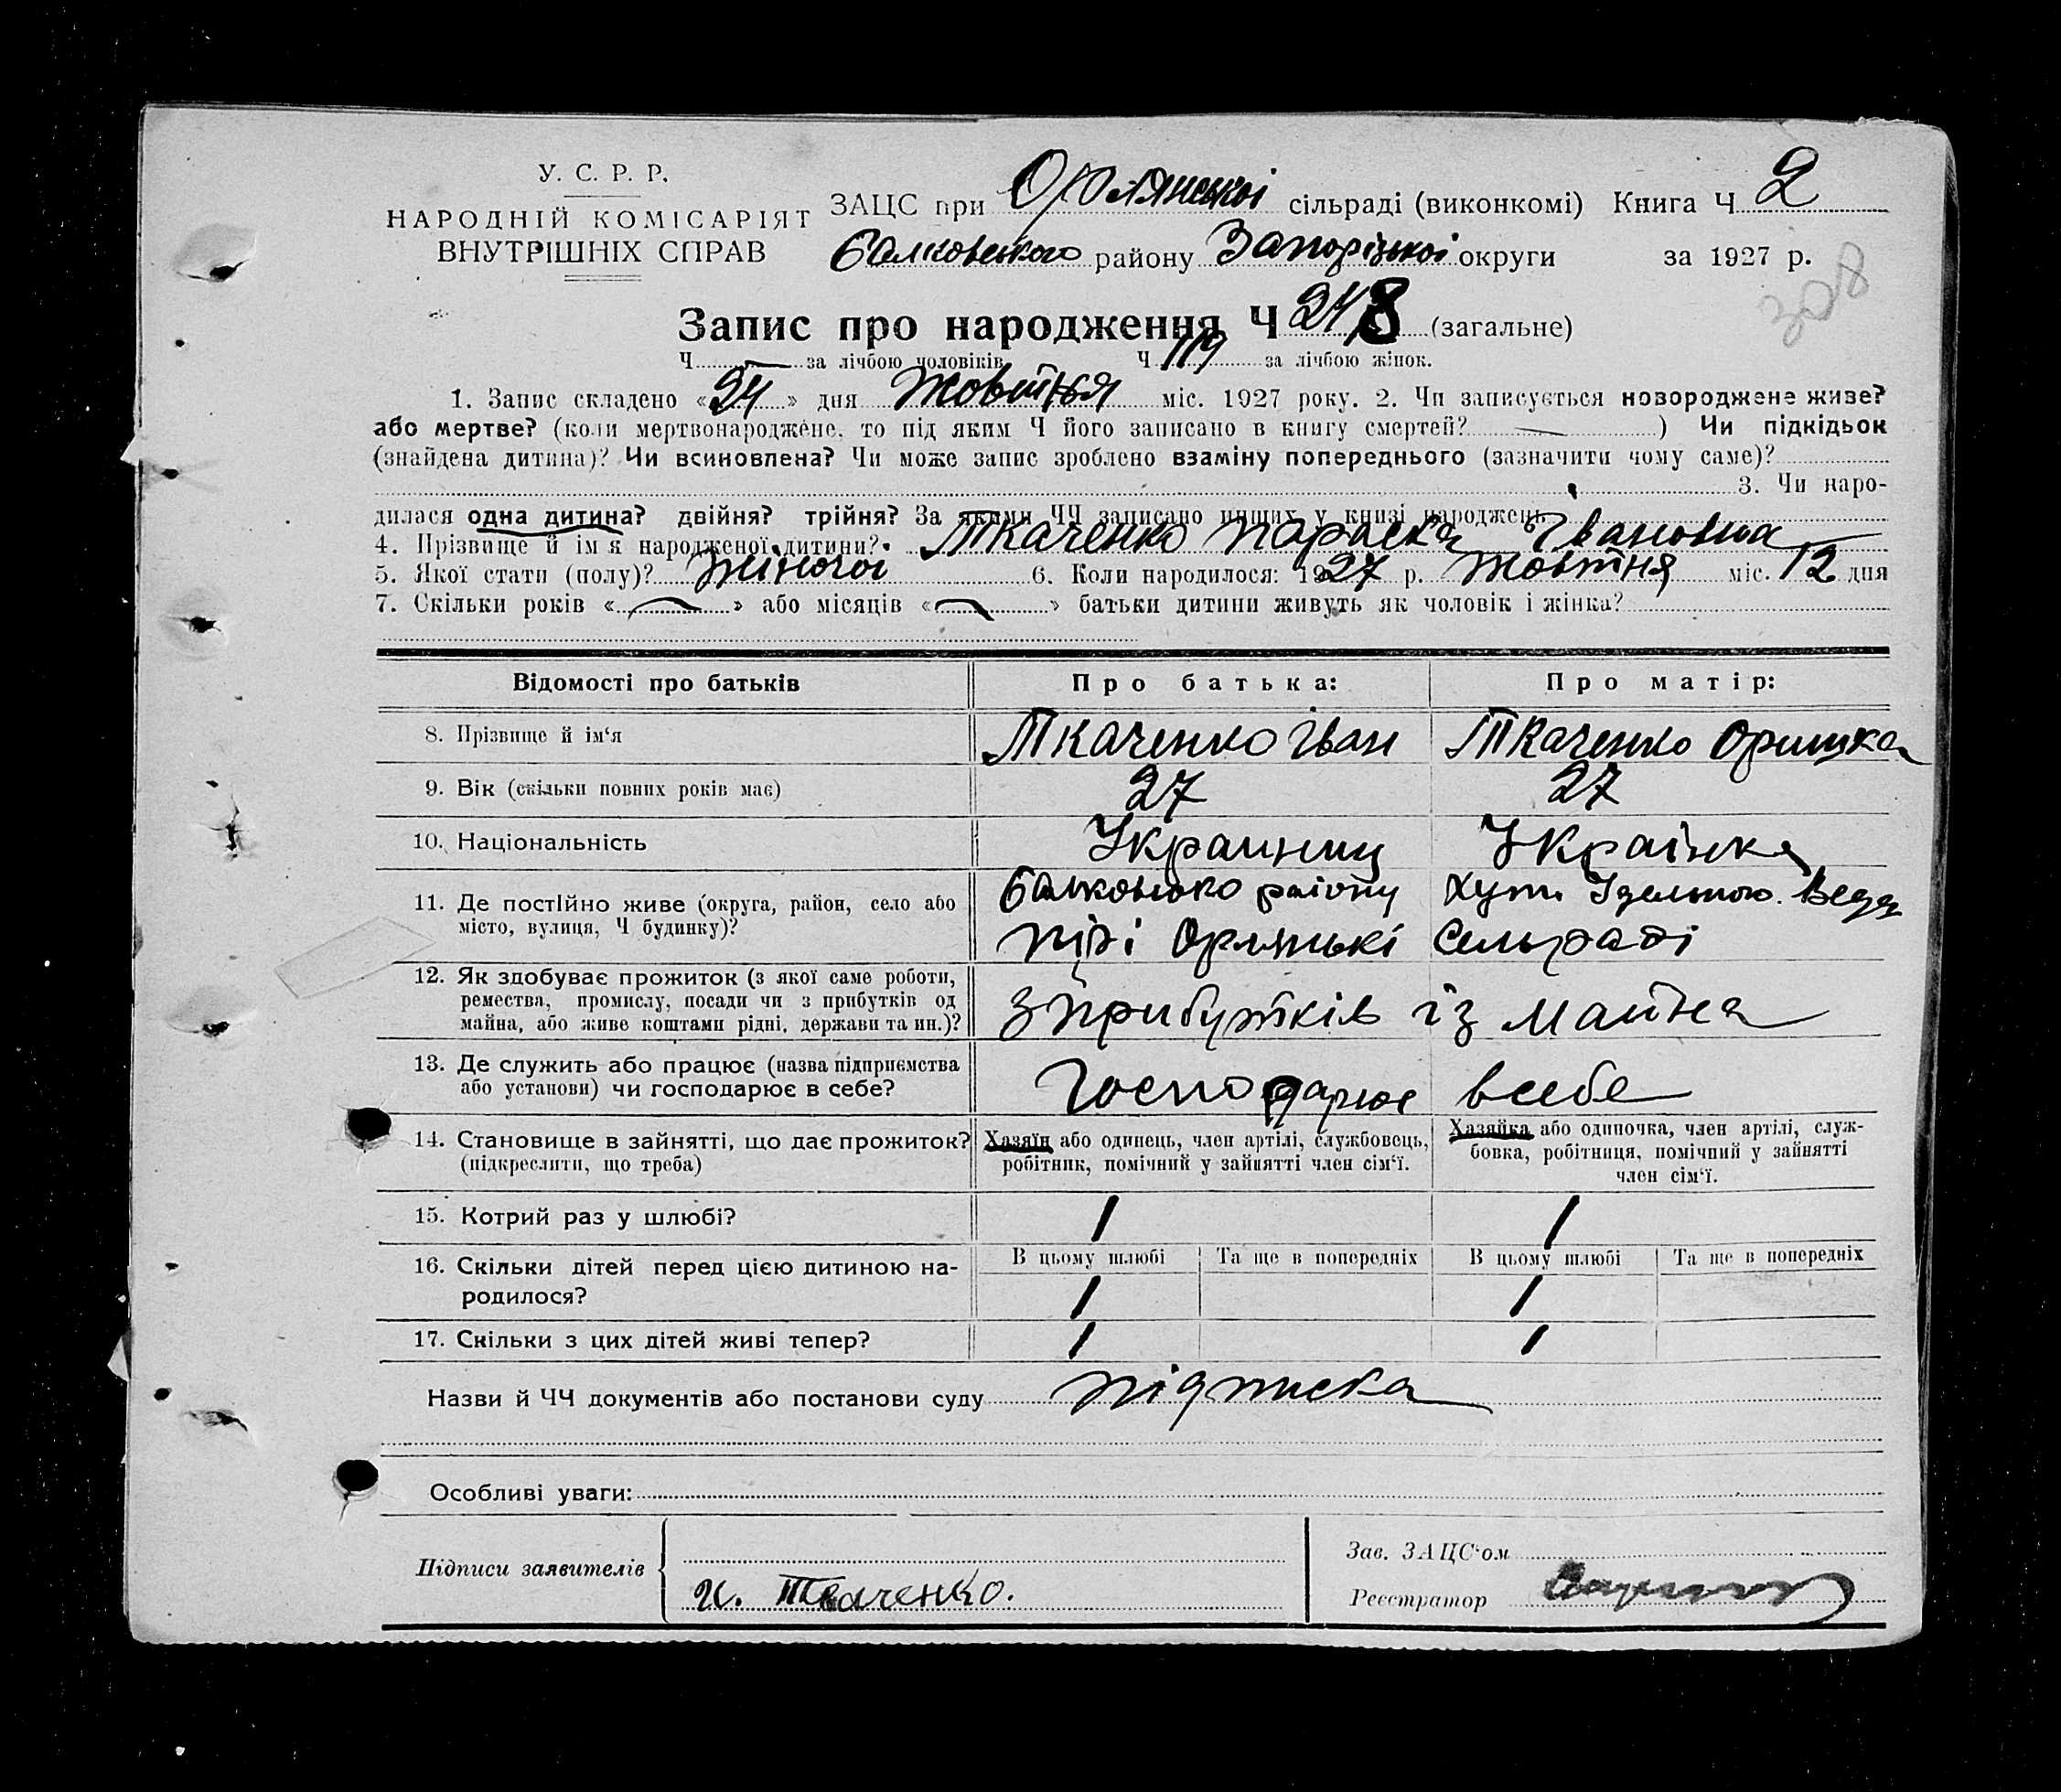 У. С. Р. Р.
НАРОДНІЙ КОМІСАРІЯТ
ВНУТРІШНІХ СПРАВ
ЗАЦС при Орлянської сільраді (виконкомі) Книга Ч 2
Балковського району Запорізької округи за 1927 р.
308
Запис про народження Ч 248 (загальне)
Ч — за лічбою чоловіків Ч 119 за лічбою жінок.
1. Запис складено «24» дня Жовтня міс. 1927 року. 2. Чи записується новороджене живе?
або мертве? (коли мертвонароджене, то під яким Ч його записано в книгу смертей? — ) Чи підкідьок
(знайдена дитина)? Чи всиновлена? Чи може запис зроблено взаміну попереднього (зазначити чому саме)?
3. Чи наро-
дилася одна дитина? двійня? трійня? За якими ЧЧ записано инших у книзі народжень
4. Прізвище й ім'я народженої дитини? Ткаченко Параска Івановна
5. Якої стати (полу)? жіночої 6. Коли народилося: 1927 р. Жовтня міс. 12 дня
7. Скільки років « — » або місяців « — » батьки дитини живуть як чоловік і жінка?
Відомості про батьків Про батька: Про матір:
8. Прізвище й ім‘я Ткаченко Іван Ткаченко Оришка
9. Вік (скільки повних років має) 27 27
10. Національність Украинец Украінка
11. Де постійно живе (округа, район, село або місто, вулиця, Ч будинку)? Балковского району Хут.
Орлянські Сельраді
12. Як здобуває прожиток (з якої саме роботи, ремества, промислу, посади чи з прибутків од майна, або живе коштами рідні, держави та ин.)? З прибутків із майна
13. Де служить або працює (назва підприємства або установи) чи господарює в себе? Господарює в себе
14. Становище в зайнятті, що дає прожиток? (підкреслити, що треба) Хазяїн або одинець, член артілі, службовець, робітник, помічний у зайнятті член сім‘ї. Хазяйка або одиночка, член артілі, служ-бовка, робітниця, помічний у зайнятті член сім‘ї.
15. Котрий раз у шлюбі? 1 1
В цьому шлюбі Та ще в попередніх В цьому шлюбі Та ще в попередніх
16. Скільки дітей перед цією дитиною на-родилося? 1 1
17. Скільки з цих дітей живі тепер? 1 1
Назви й ЧЧ документів або постанови суду підписка
Особливі уваги:
Підписи заявителів И. Ткаченко.
Зав. ЗАЦС‘ом
Реєстратор